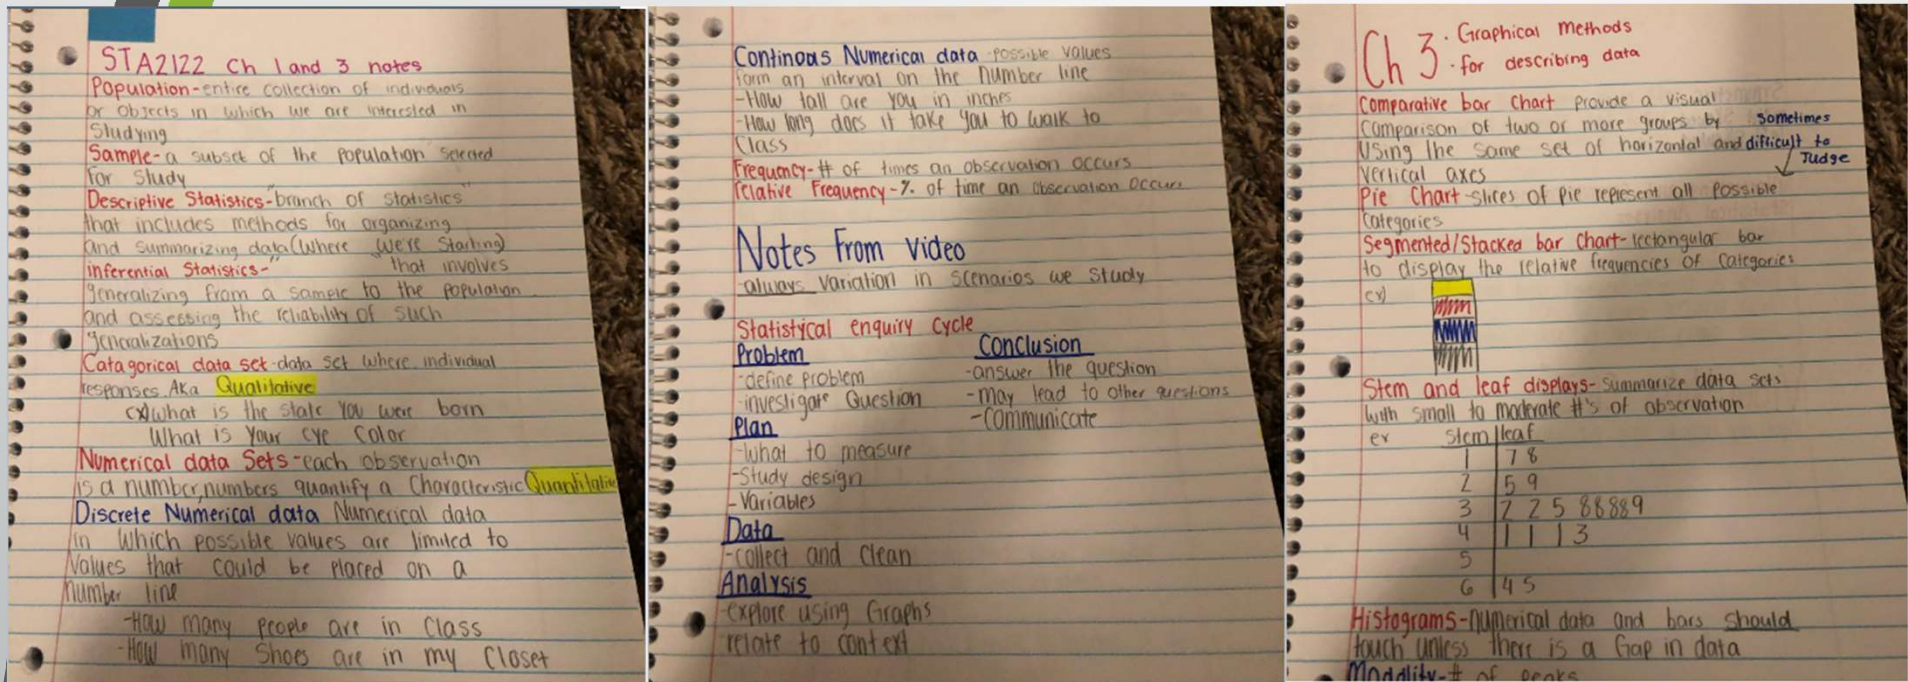 STA2122 Ch 1 and 3 notes
Population-entire collection of individuals
or objects in which we are interested in
Studying
Sample-a subset of the population selected
for study
Descriptive Statistics-"branch of statistics"
that includes methods for organizing
and summarizing data(where we're starting)
inferential Statistics-" " that involves
generalizing from a sample to the population
and assessing the reliability of such
generalizations
Catagorical data set-data set where individual
responses. AKa Qualitative
ex)What is the state you were born
What is your eye color
Numerical data Sets-each observation
is a number, numbers quantify a characteristic Quantitative
Discrete Numerical data Numerical data
in which possible values are limited to
values that could be placed on a
number line
-How many people are in Class
-How many Shoes are in my Closet
Continoas Numerical data -possible values
form an interval on the number line
-How tall are you in inches
-How long does it take you to walk to
Class
Frequency-# of times an observation occurs
relative Frequency-% of time an observation occurs
Notes From Video
-always variation in scenarios we study
Statistycal enquiry Cycle
Problem
-define problem
-investigate Question
Plan
-What to measure
-Study design
-Variables
Data
-collect and clean
Analysis
-explore using Graphs
relate to context
Conclusion
-answer the question
-may lead to other questions
-Communicate
Ch 3 · Graphical methods
· for describing data
Comparative bar Chart Provide a visual
Comparison of two or more groups by
Using the same set of horizontal and
vertical axes
sometimes
difficult to
Judge
Pie Chart-slices of pie represent all possible
Categories
Segmented/Stacked bar Chart-rectangular bar
to display the relative frequencies of Categories
ex)
Stem and leaf displays-summarize data sets
with small to moderate #'s of observation
ex Stem leaf
1 7 8
2 5 9
3 2 2 5 88889
4 1 1 1 3
5
6 4 5
Histograms-numerical data and bars should
touch unless there is a Gap in data
Modality-# of peaks